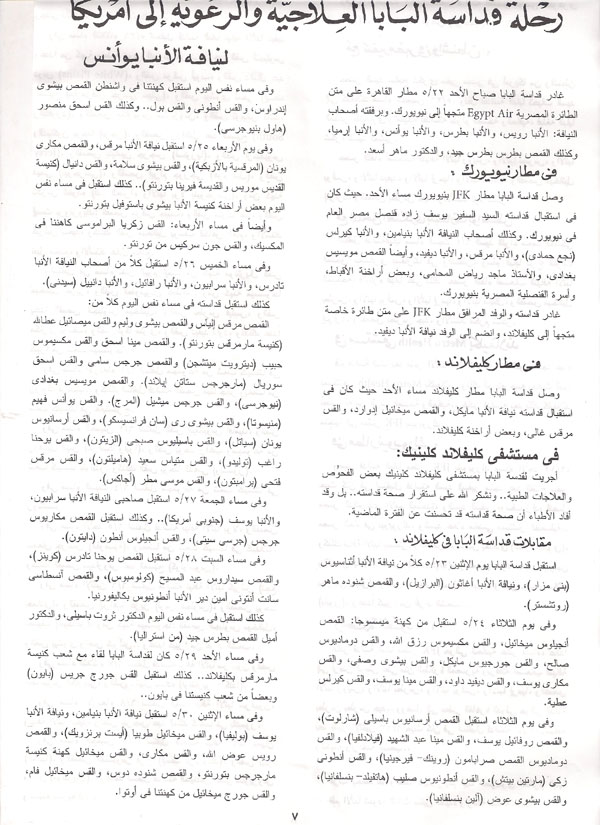 رحلة قداسة البابا العلاجية والرعوية إلى أمريكا
لنيافة الأنبا يوأنس
غادر قداسة البابا صباح الأحد ٥/٢٢ مطار القاهرة على متن
الطائرة المصرية Egypt Air متجهاً إلى نيويورك. وبرفقته أصحاب
النيافة: الأنبا رويس، والأنبا بطرس، والأنبا يوأنس، والأنبا إرميا،
وكذلك القمص بطرس بطرس جيد، والدكتور ماهر أسعد.
فى مطار نيويورك :
وصل قداسة البابا مطار JFK بنيويورك مساء الأحد. حيث كان فى
فى استقبال قداسته السيد السفير يوسف زاده قنصل مصر العام
فى نيويورك. وكذلك أصحاب النيافة الأنبا بنيامين، والأنبا كيرلس
(نجع حمادى)، والأنبا مرقس، والأنبا ديفيد، وأيضاً القمص مويسيس
بغدادى، والأستاذ ماجد رياض المحامى، وبعض أراخنة الأقباط،
وأسرة القنصلية المصرية بنيويورك.
غادر قداسته والوفد المرافق مطار JFK على متن طائرة خاصة
متجهاً إلى كليفلاند، وانضم إلى الوفد نيافة الأنبا ديفيد.
فى مطار كليفلاند :
وصل قداسة البابا مطار كليفلاند مساء الأحد حيث كان فى
استقبال قداسته نيافة الأنبا مايكل، والقمص ميخائيل إدوارد، والقس
مرقس غالى، وبعض أراخنة كليفلاند.
فى مستشفى كليفلاند كلينيك:
أجريت لقدسة البابا بمستشفى كليفلاند كلينيك بعض الفحوص
والعلاجات الطبية.. ونشكر الله على استقرار صحة قداسته.. بل وقد
أفاد الأطباء أن صحة قداسته قد تحسنت عن الفترة الماضية.
مقابلات قداسة البابا فى كليفلاند:
استقبل قداسة البابا يوم الإثنين ٥/٢٣ كلاً من نيافة الأنبا أثناسيوس
(بنى مزار)، ونيافة الأنبا أغاثون (البرازيل)، والقمص شنوده ماهر
(روتشستر).
وفى يوم الثلاثاء ٥/٢٤ استقبل من كهنة ميسسوجا: القمص
أنجيلوس ميخائيل، والقس مكسيموس رزق الله، والقس دوماديوس
صالح، والقس جورجيوس مايكل، والقس بيشوى وصفى، والقس
مكارى يوسف، والقس ديفيد داود، والقس مينا يوسف، والقس كيرلس
عطية.
وفى يوم الثلاثاء استقبل القمص أرسانيوس باسيلى (شارلوت)،
والقمص روفائيل يوسف، والقس مينا عبد الشهيد (فيلادلفيا)، والقس
دوماديوس القمص صرابامون (روينك - فيرجينيا)، والقس أنطونى
زكى (مارتين بيتش)، والقس أنطونيوس صليب (هاتفيلد- بنسلفانيا)،
والقس بيشوى عوض (آلين بنسلفانيا).
وفى مساء نفس اليوم استقبل كهنتنا فى واشنطن القمص بيشوى
إندراوس، والقس أنطونى والقس بول.. وكذلك القس اسحق منصور
(هاول بنيوجرسى).
وفى يوم الأربعاء ٥/٢٥ استقبل نيافة الأنبا مرقس، والقمص مكارى
يونان (المرقسية بالأزبكية)، والقس بيشوى سلامة، والقس دانيال (كنيسة
القديس موريس والقديسة فيرينا بتورنتو).. كذلك استقبل فى مساء نفس
اليوم بعض أراخنة كنيسة الأنبا بيشوى باستوفيل بتورنتو.
وأيضاً فى مساء الأربعاء: القس زكريا البراموسى كاهننا فى
المكسيك، والقس جون سركيس من تورنتو.
وفى مساء الخميس ٥/٢٦ استقبل كلاً من أصحاب النيافة الأنبا
تادرس، والأنبا سرابيون، والأنبا رافائيل، والأنبا دانييل (سيدنى).
كذلك استقبل قداسته فى مساء نفس اليوم كلاً من:
القمص مرقس إلياس والقمص بيشوى وليم والقس ميصائيل عطاالله
(كنيسة مارمرقس بتورنتو).. والقمص مينا اسحق والقس مكسيموس
حبيب (ديترويت ميتشجن) والقمص جرجس سامى والقس اسحق
سوريال (مارجرجس ستاتن إيلاند). والقمص مويسيس بغدادى
(نيوجرسى)، والقس جرجس ميشيل (المرج). والقس يوأنس فهيم
(منيسوتا)، والقس بيشوى رى (سان فرانسيسكو)، والقس أرسانيوس
يونان (سياتل)، والقس باسيليوس صبحى (الزيتون)، والقس يوحنا
راغب (توليدو)، والقس متياس سعيد (هاميلتون)، والقس مرقس
فتحى (برامبتون)، والقس موسى مطر (أجاكس).
وفى مساء الجمعة ٥/٢٧ استقبل صاحبى النيافة الأنبا سرابيون،
والأنبا يوسف (جنوبى أمريكا).. وكذلك استقبل القمص مكاريوس
جرجس (جرسى سيتى)، والقس أنجيلوس أنطون (دايتون).
وفى مساء السبت ٥/٢٨ استقبل القمص يوحنا تادرس (كوينز)،
والقمص سيداروس عبد المسيح (كولومبوس)، والقمص أنسطاسى
سانت أنتونى أمين دير الأنبا أنطونيوس بكاليفورنيا.
كذلك استقبل فى مساء نفس اليوم الدكتور ثروت باسيلى، والدكتور
أميل القمص بطرس جيد (من استراليا).
وفى مساء الأحد ٥/٢٩ كان لقداسة البابا لقاء مع شعب كنيسة
مارمرقس بكليفلاند.. كذلك استقبل القس جورج جريس (بايون)
وبعضاً من شعب كنيستنا فى بايون..
وفى مساء الإثنين ٥/٣٠ استقبل نيافة الأنبا بنيامين، ونيافة الأنبا
يوسف (بوليفيا)، والقس ميخائيل طوبيا (أيست برنزويك)، والقمص
رويس عوض الله، والقس مكارى، والقس ميخائيل كهنة كنيسة
مارجرجس بتورنتو، والقمص شنوده دوس، والقس ميخائيل فام،
والقس جورج ميخائيل من كهنتنا فى أوتوا.
٧